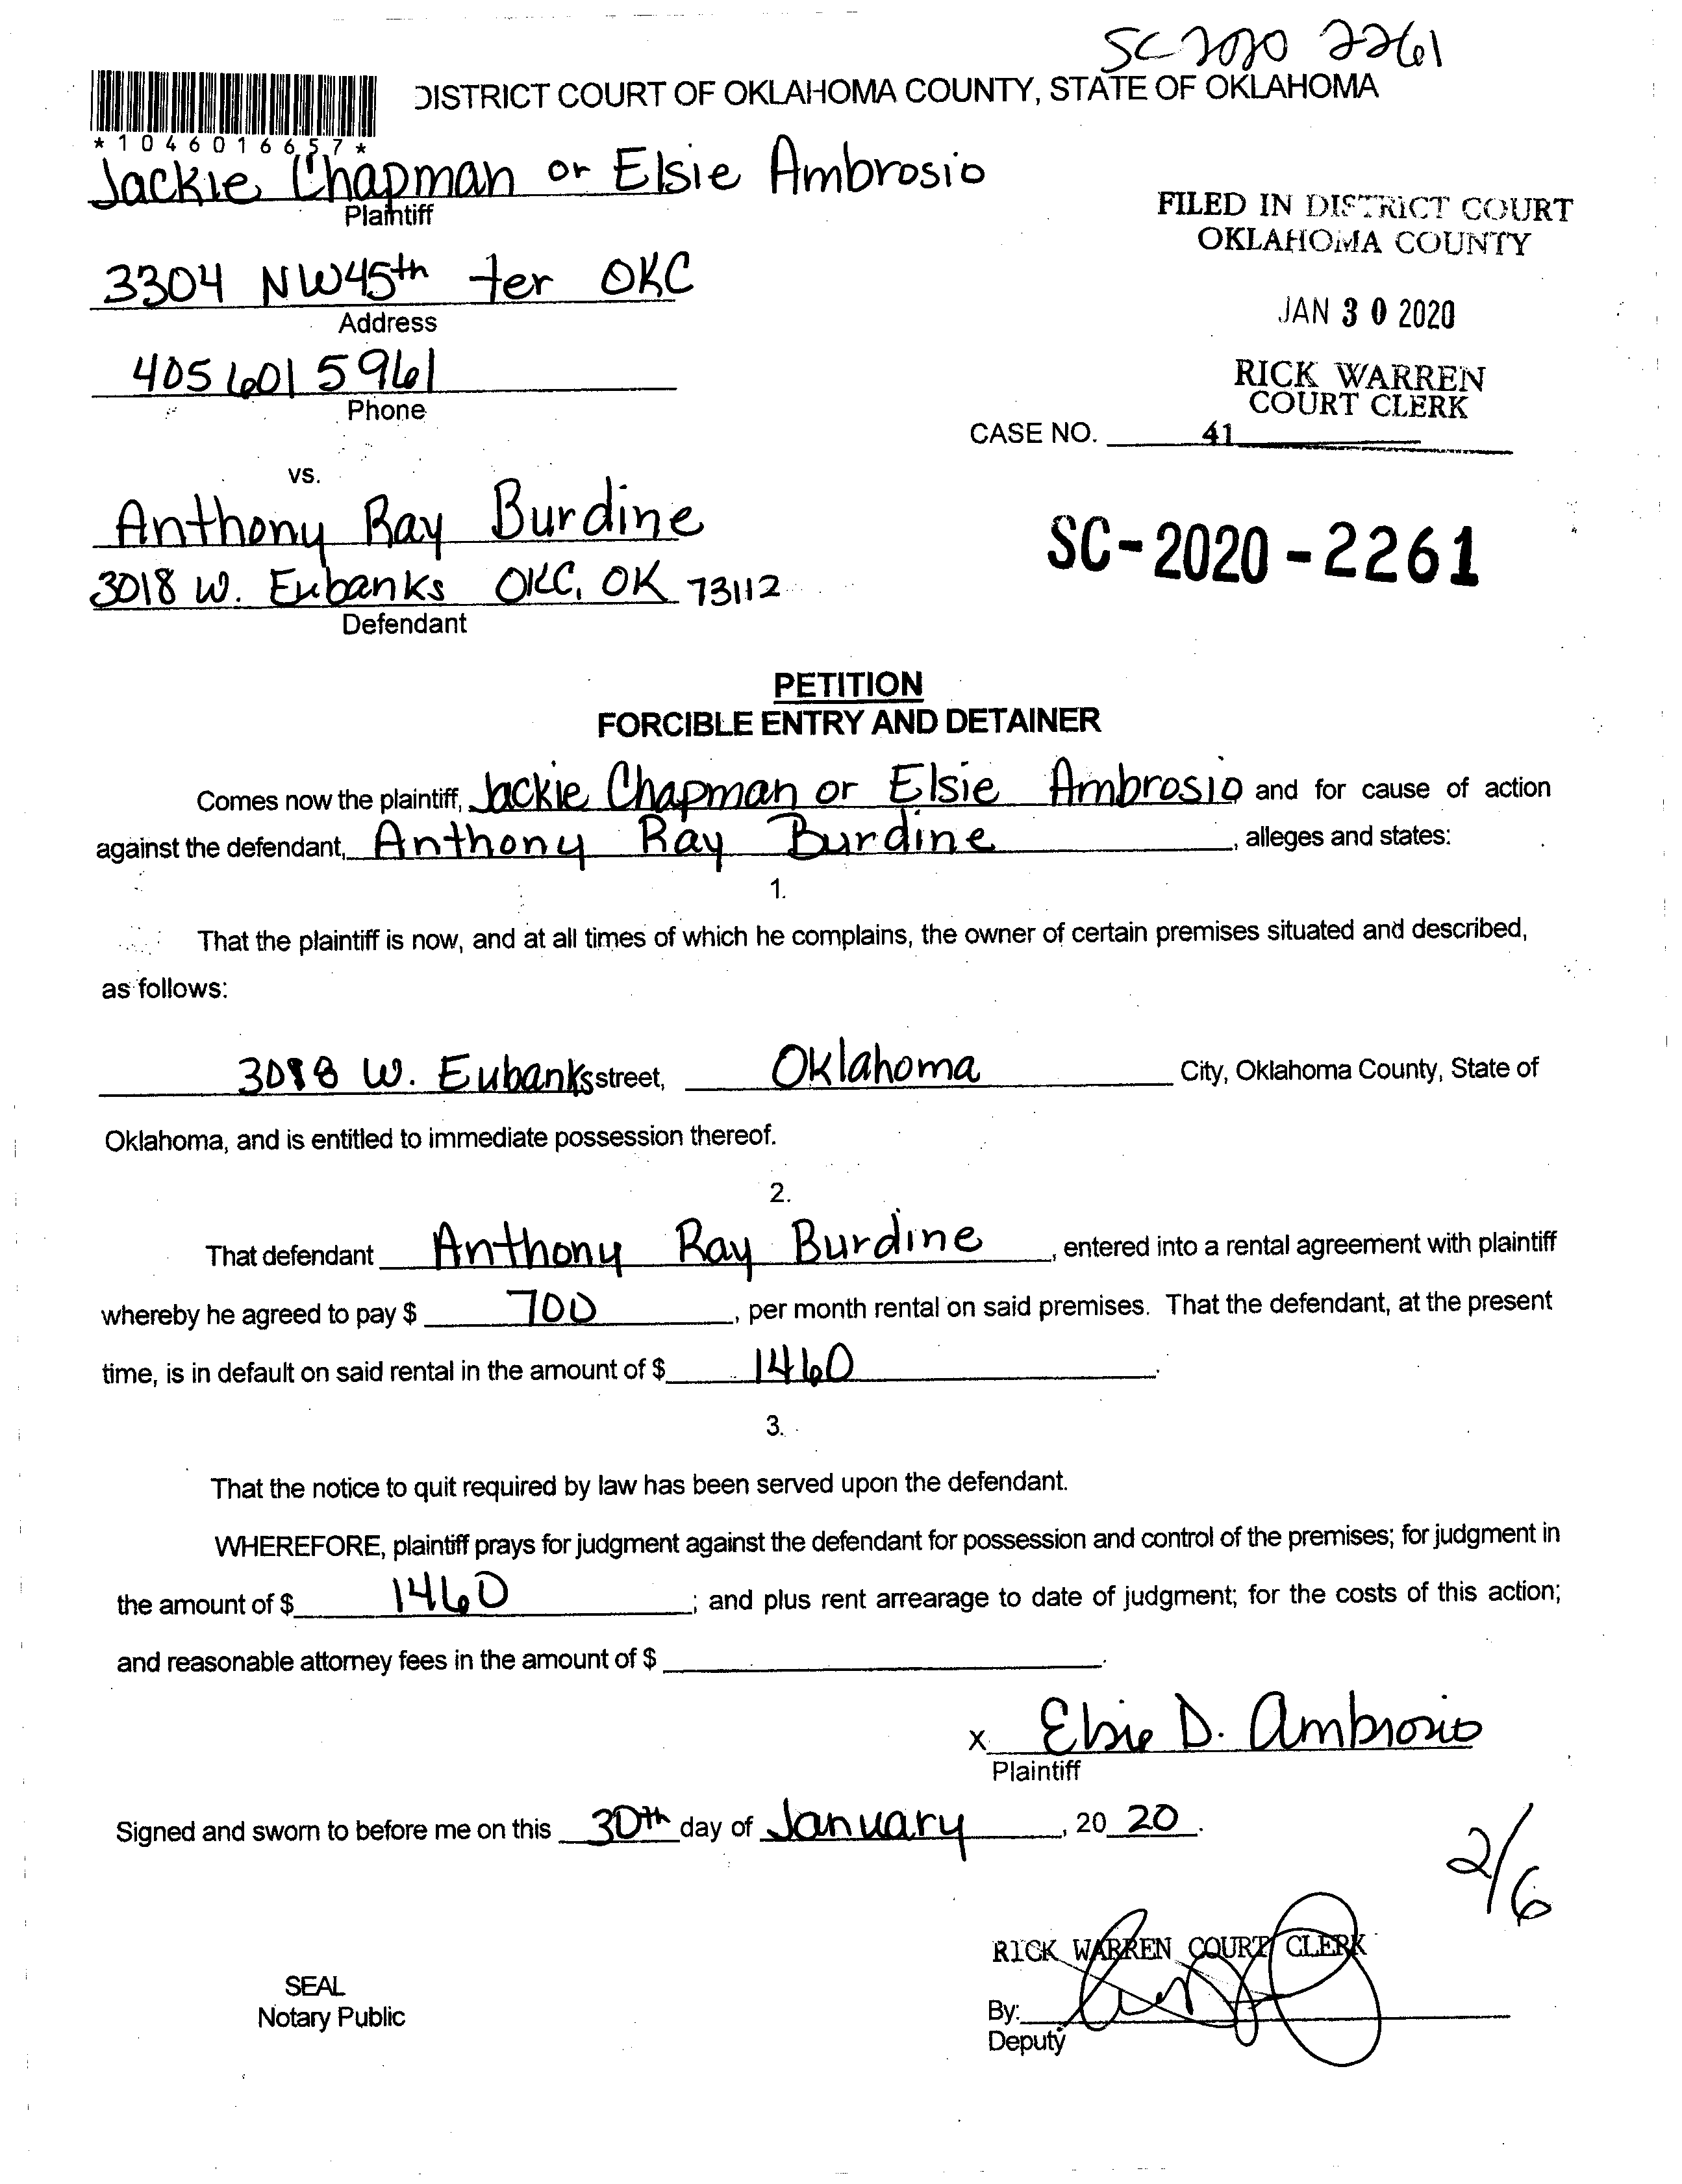 SC 2020 2261
DISTRICT COURT OF OKLAHOMA COUNTY, STATE OF OKLAHOMA
*1046016657*
Jackie Chapman or Elsie Ambrosio
Plaintiff
FILED IN DISTRICT COURT
OKLAHOMA COUNTY
3304 NW45th ter OKC
Address
JAN 30 2020
405 601 5961
Phone
RICK WARREN
COURT CLERK
CASE NO. 41
vs.
Anthony Ray Burdine
3018 W. Eubanks OKC, OK 73112
Defendant
SC-2020-2261
PETITION
FORCIBLE ENTRY AND DETAINER
Comes now the plaintiff, Jackie Chapman or Elsie Ambrosio and for cause of action
against the defendant, Anthony Ray Burdine, alleges and states:
1.
That the plaintiff is now, and at all times of which he complains, the owner of certain premises situated and described,
as follows:
3018 W. Eubanks street, Oklahoma City, Oklahoma County, State of
Oklahoma, and is entitled to immediate possession thereof.
2.
That defendant Anthony Ray Burdine, entered into a rental agreement with plaintiff
whereby he agreed to pay $ 700, per month rental on said premises. That the defendant, at the present
time, is in default on said rental in the amount of $ 1460.
3.
That the notice to quit required by law has been served upon the defendant.
WHEREFORE, plaintiff prays for judgment against the defendant for possession and control of the premises; for judgment in
the amount of $ 1460; and plus rent arrearage to date of judgment; for the costs of this action;
and reasonable attorney fees in the amount of $ .
x Elsie D. Ambrosio
Plaintiff
Signed and sworn to before me on this 30th day of January, 20 20.
2/6
RICK WARREN COURT CLERK
SEAL
Notary Public
By:
Deputy